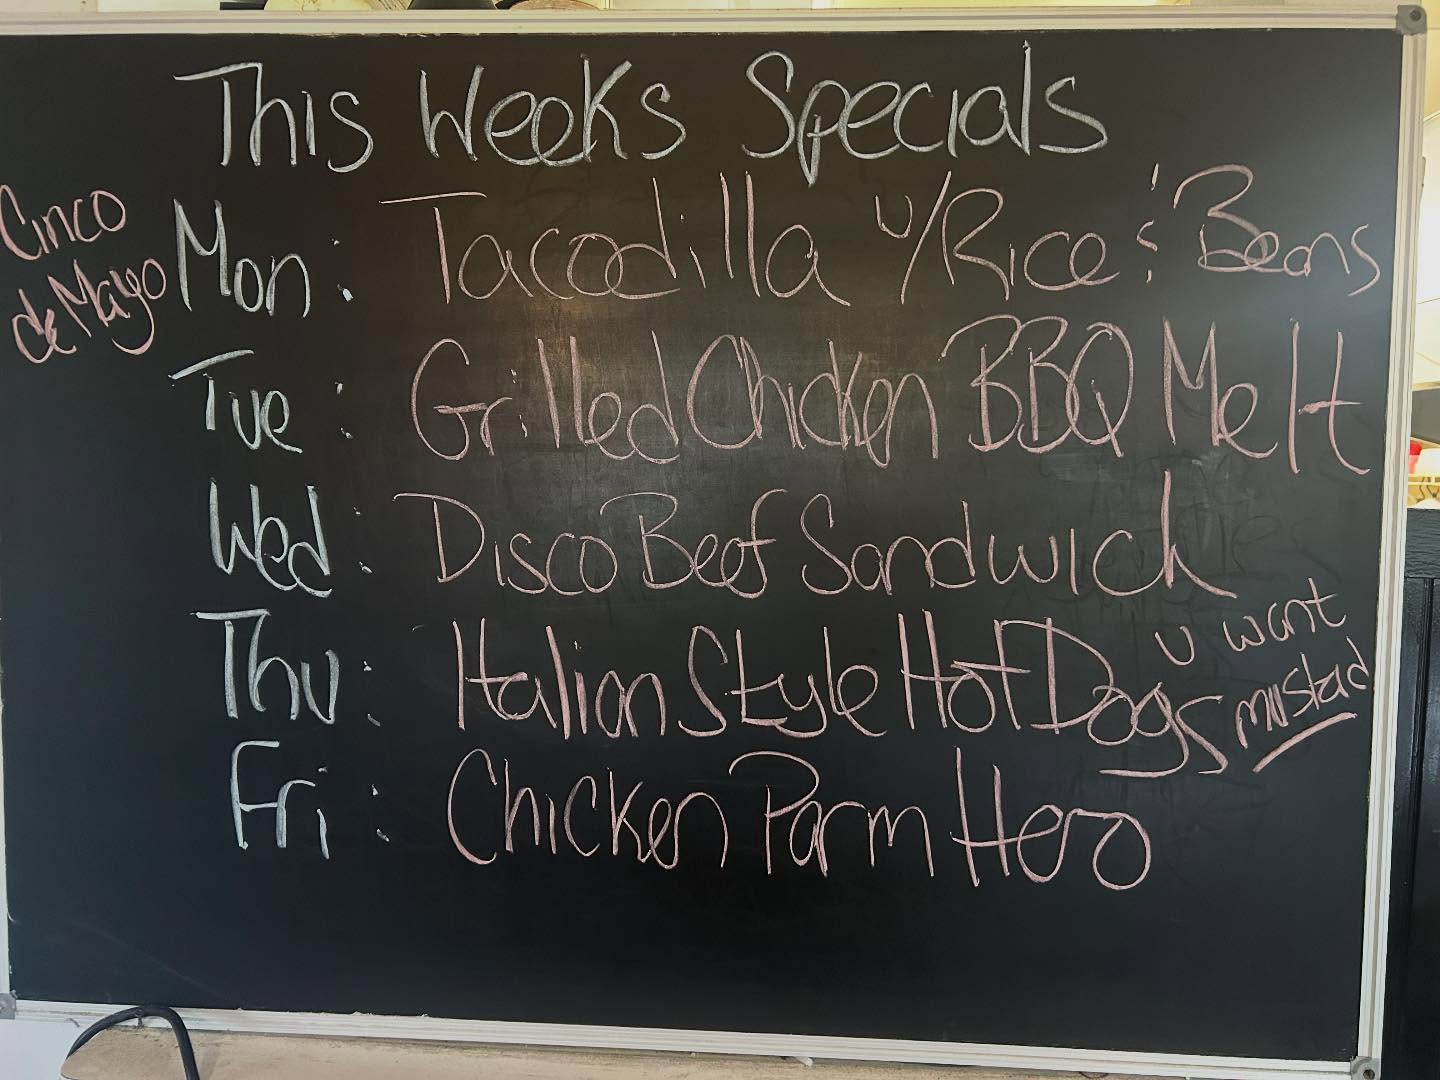 This Weeks Specials
Cinco
de Mayo
Mon: Tacodilla w/Rice & Beans
Tue: Grilled Chicken BBQ Melt
Wed: Disco Beef Sandwich
Thu: Italian Style Hot Dogs
u want
mustad
Fri: Chicken Parm Hero